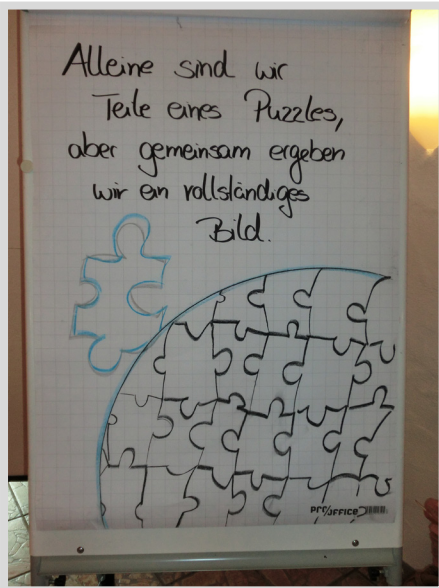 Alleine sind wir
Teile eines Puzzles,
aber gemeinsam ergeben
wir ein vollständiges
Bild.
PRO/OFFICE